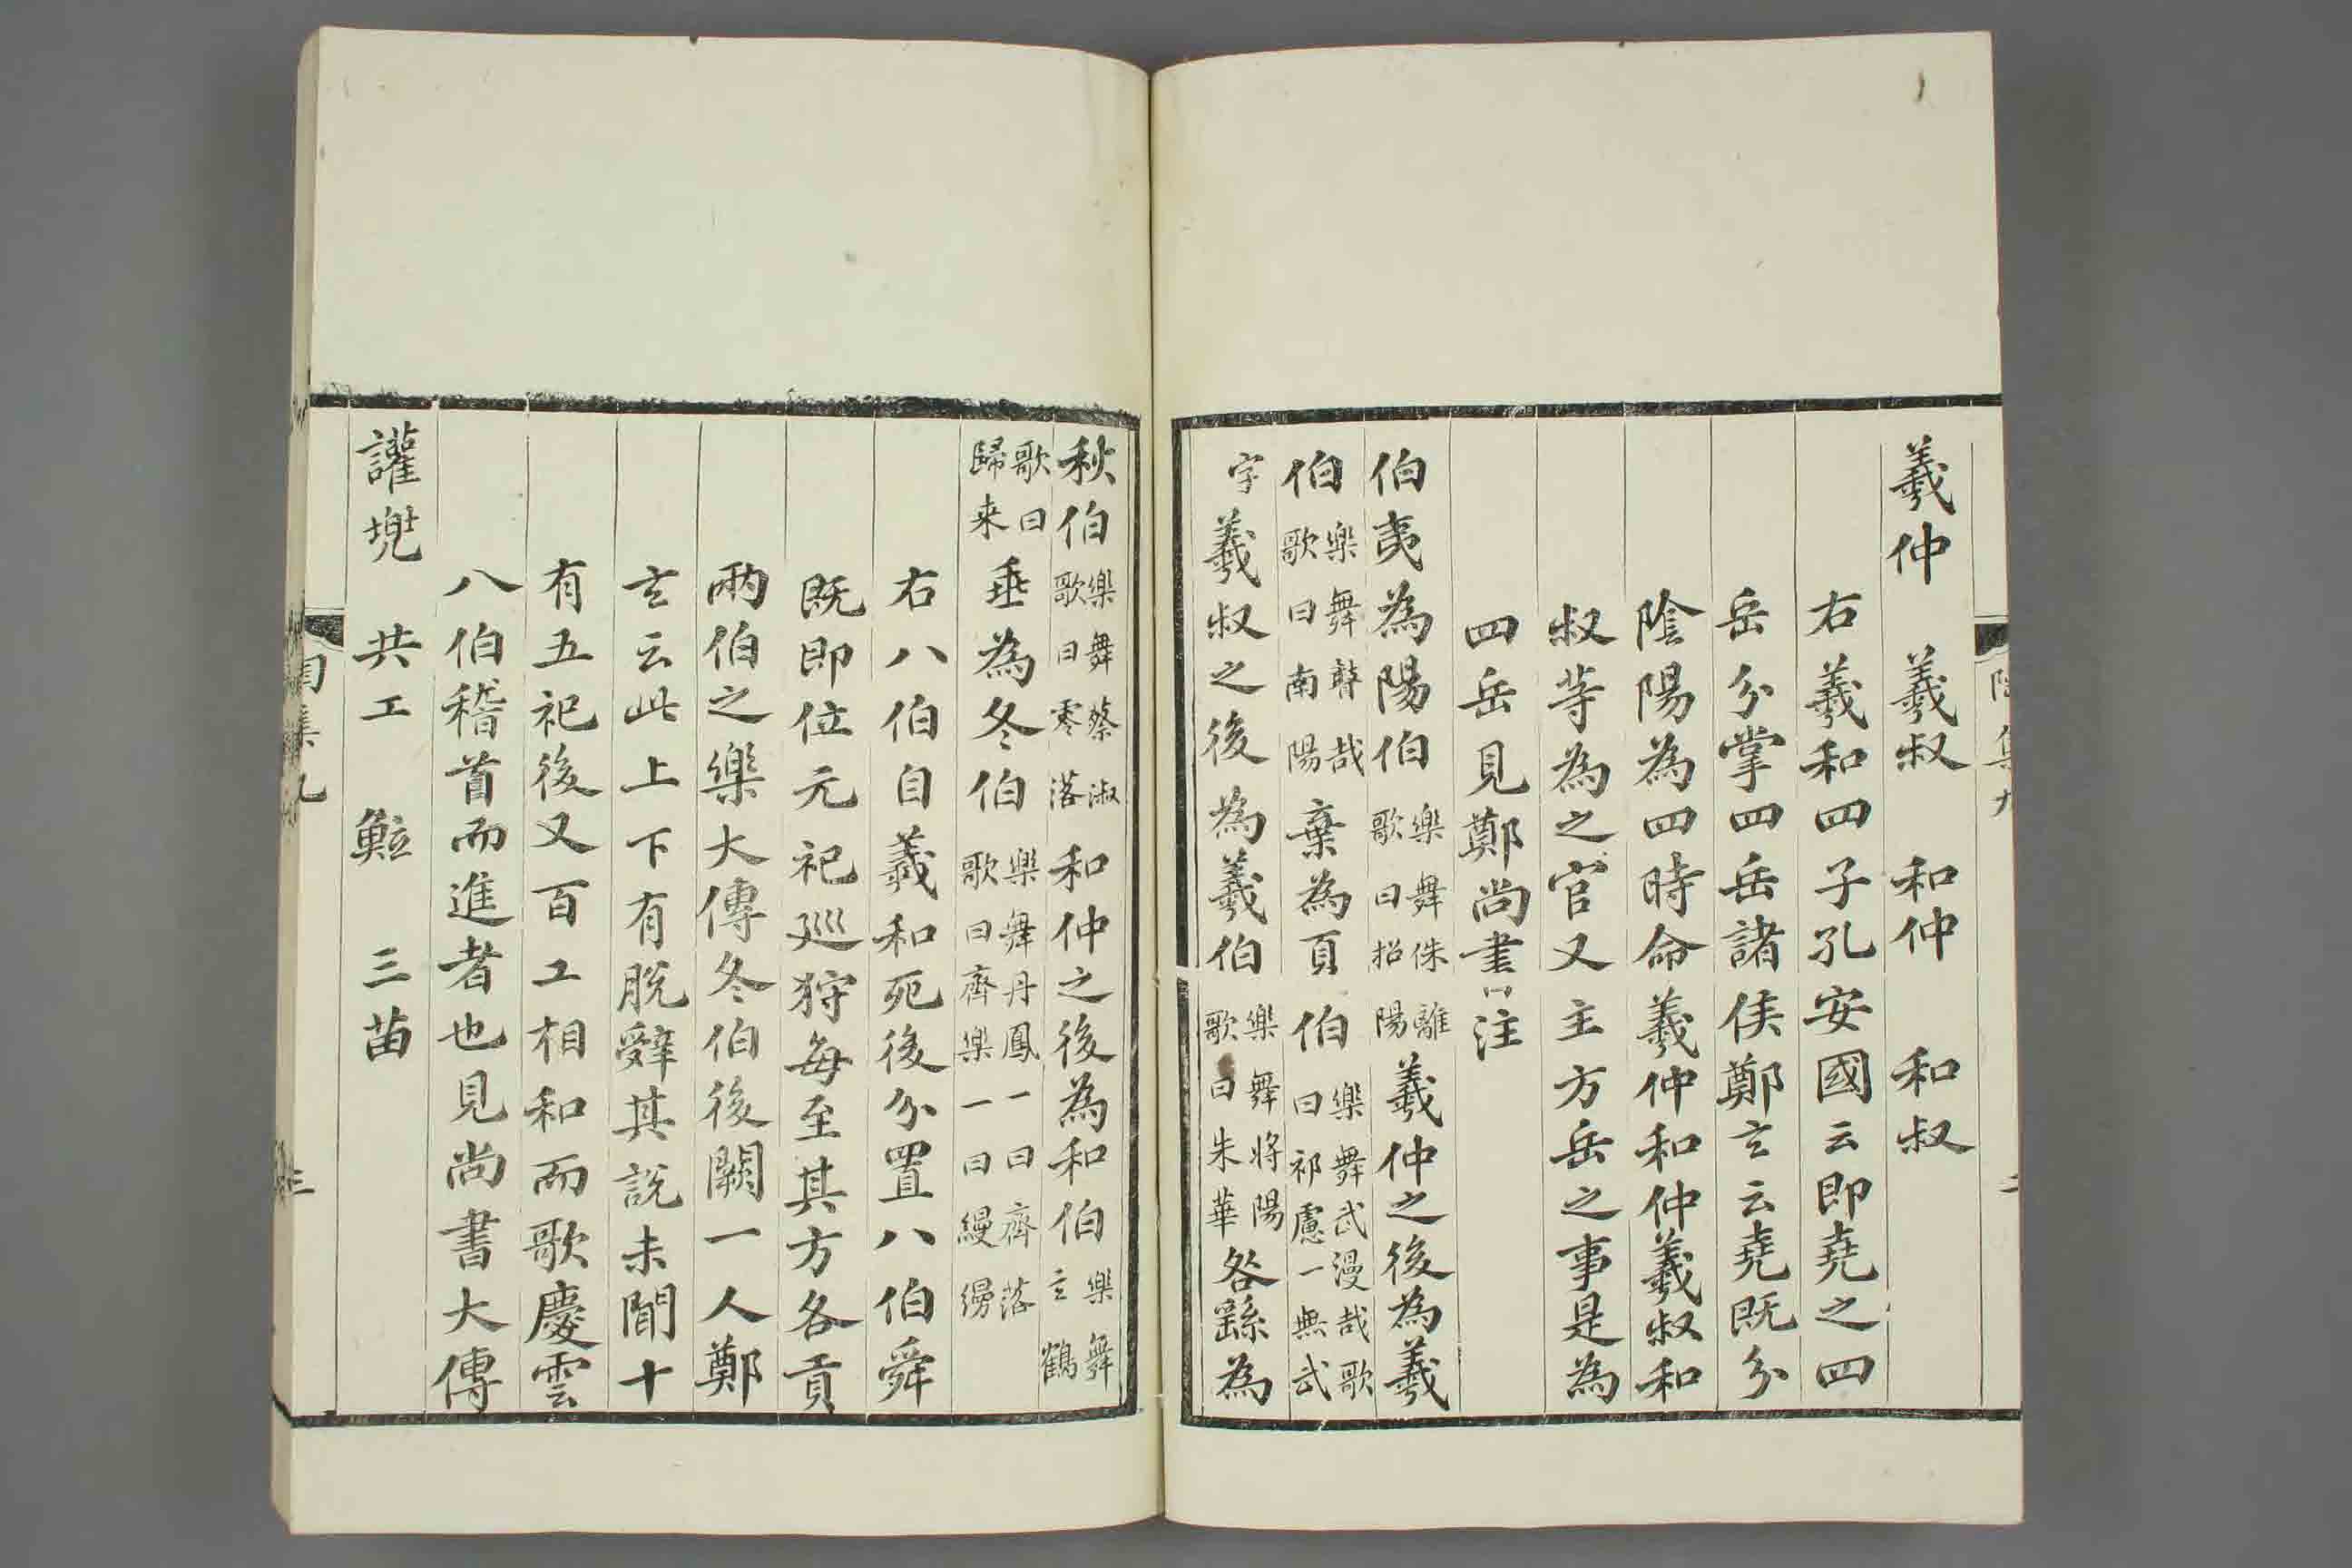 羲仲 羲叔 和仲 和叔
右羲和四子孔安國云即堯之四
岳分掌四岳諸侯鄭玄云堯既分
陰陽為四時命羲仲和仲羲叔和
叔等為之官又主方岳之事是為
四岳見鄭尚書注
伯夷為陽伯樂舞侏離歌曰招陽羲仲之後為羲
伯樂舞鼚哉歌曰南陽棄為頁伯樂舞武漫哉歌曰祁慮一無武
字羲叔之後為羲伯樂舞將陽歌曰朱華咎繇為
秋伯樂舞蔡淑歌曰零落和仲之後為和伯樂舞玄鶴
歌曰歸来垂為冬伯樂舞丹鳳一曰齊落歌曰齊樂一曰縵縵
右八伯自羲和死後分置八伯舜
既即位元祀巡狩每至其方各貢
兩伯之樂大傳冬伯後闕一人鄭
玄云此上下有脫辭其說未聞十
有五祀後又百工相和而歌慶雲
八伯稽首而進者也見尚書大傳
讙兠 共工 鮌 三苗